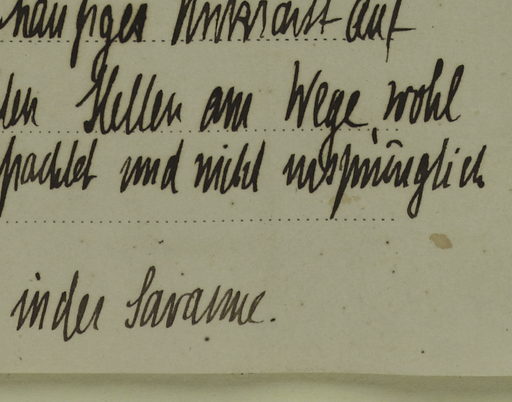 häufiges Unkraut auf
len Stellen am Wege, wohl
pachtet und nicht ursprünglich
in der Savanne.